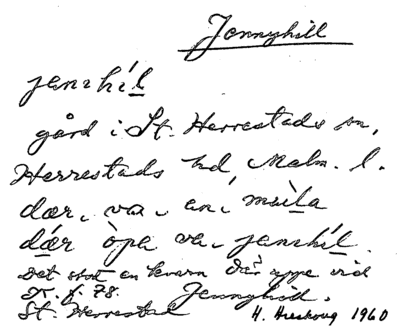 Jennyhill
jenıhíl
gård i St. Herrestads sn,
Herrestads hd, Malm. l.
dær, va, en, mùla
dǽr òpa va, jenıhíl.
Det stod en kvarn där uppe vid
K. f. 78. Jennyhill.
St. Herrestad H. Huskovg 1960